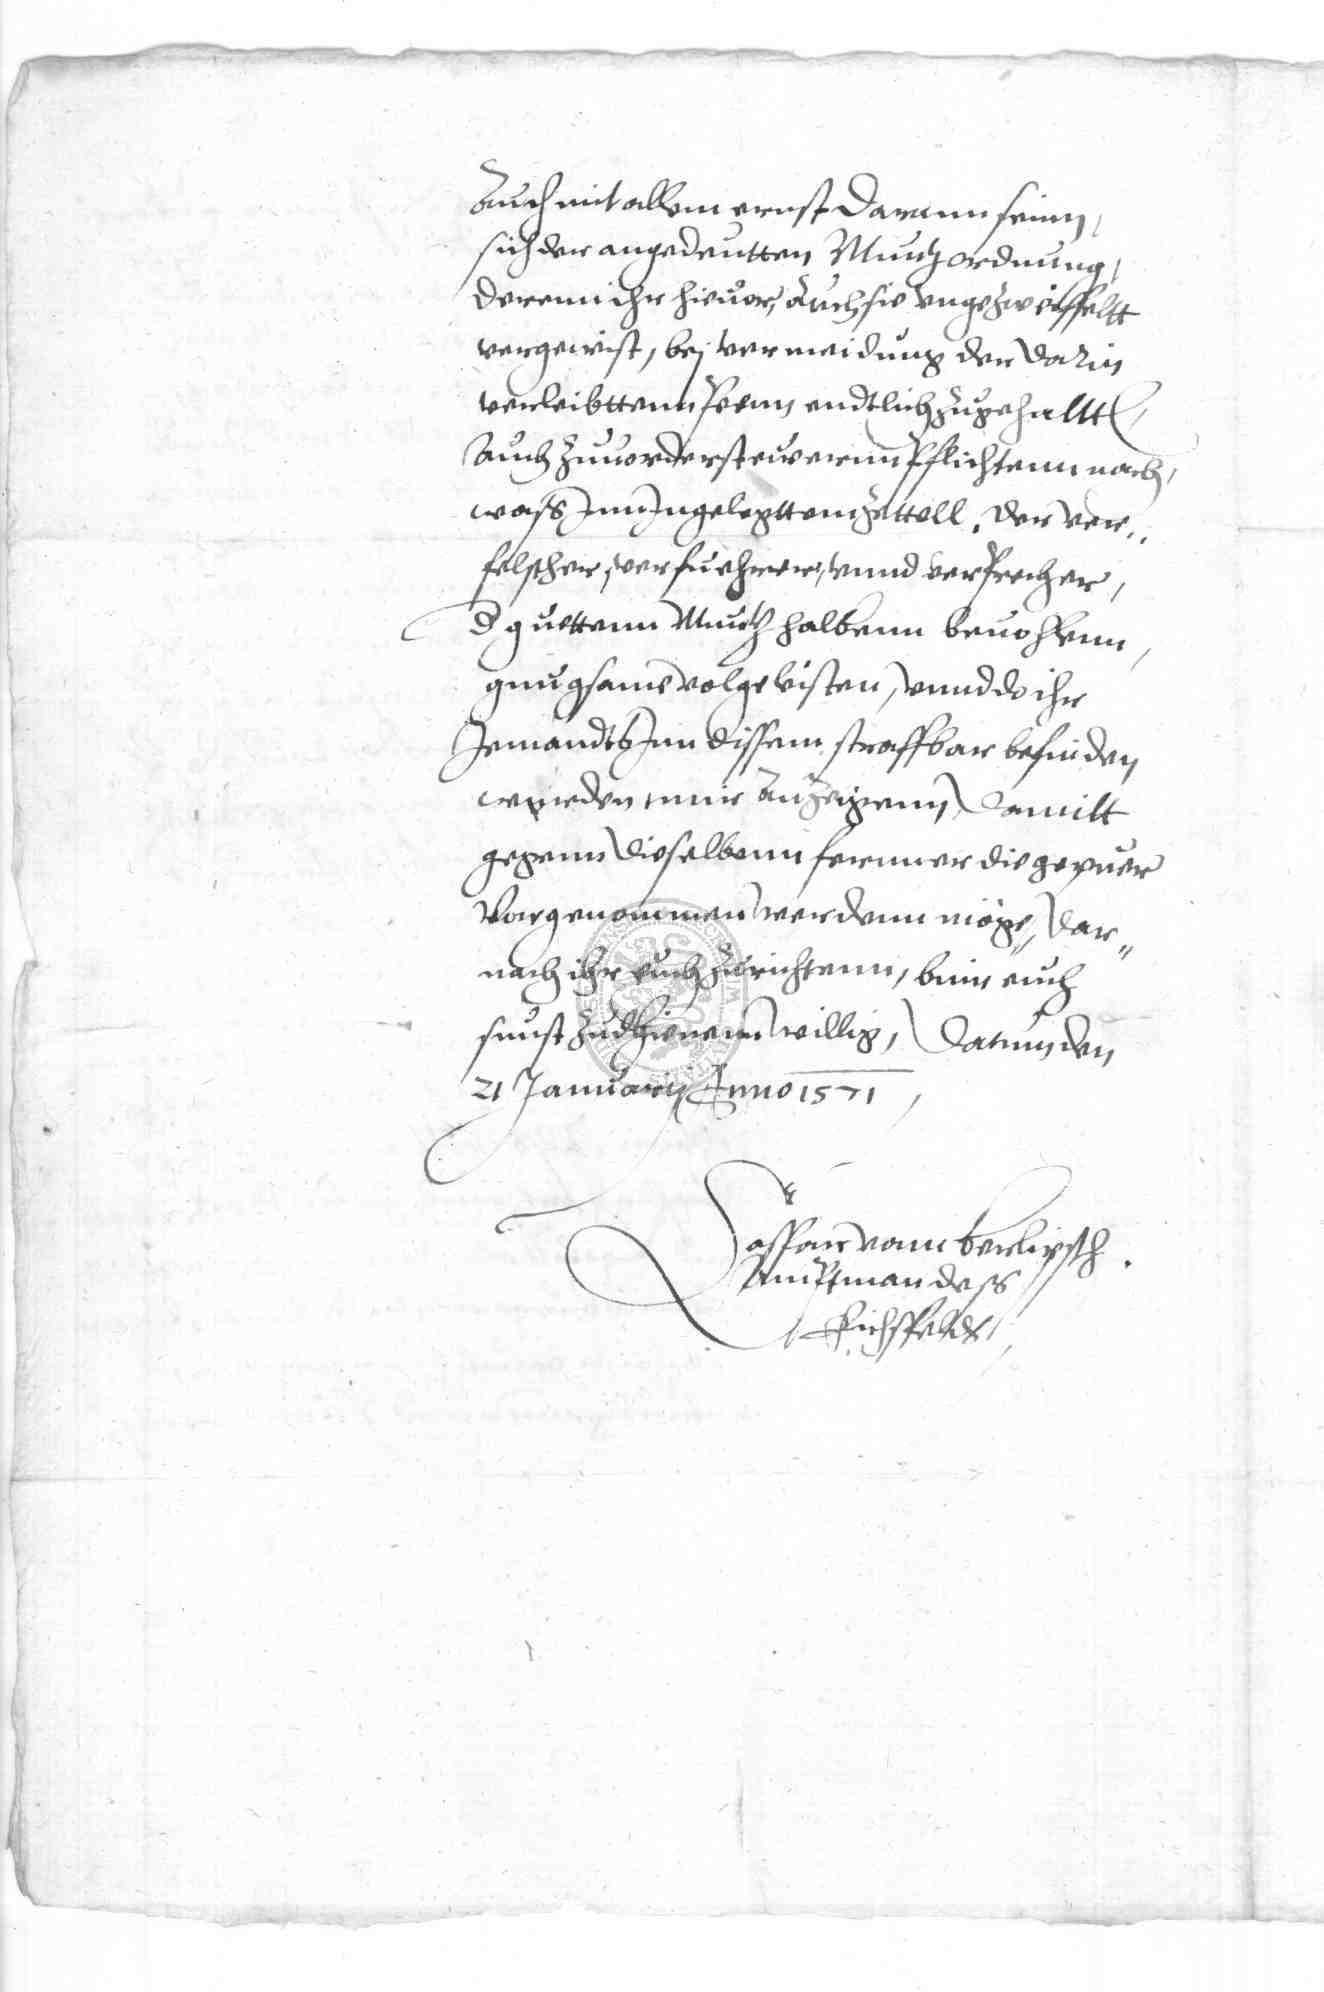 Auch mit allem ernst daran sein,
sich der angedeutten Muntzordnung,
deren ihr hieuor, auch sie ungezweiffeltt
vergewist, bej vermeidung der darin
verleibttenn peenn endtlich zugehaltten,
Auch zuuorderst ewernn pflichtenn nach,
wass Inn Ingelegttem Zettell, der ver..
felscher, verfuehrer, unnd versprecher,
d guettenn Muntz halbenn beuohlenn,
gnugsame volge leisten, unnd do ihr
Jemandts Inn dissem straffbar befinden
wurden mir Anzeigenn, damitt
gegenn dieselbenn fernner die gepuer
vorgenommen werdenn möge, dar"
nach ihr euch zurichtenn, binn euch
sunst zudhienenn willig, Datum den
21 January Anno 1571,
Caspar vam berlipsch.
Amptman dess
Eichsfelds,